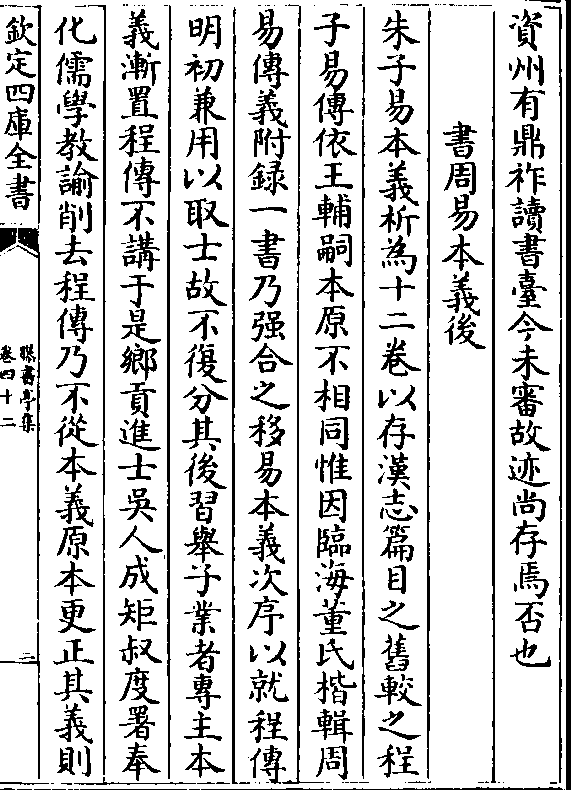 資州有鼎祚讀書臺今未審故迹尚存焉否也
書周易本義後
朱子易本義析為十二卷以存漢志篇目之舊較之程
子易傳依王輔嗣本原不相同惟因臨海董氏楷輯周
易傳義附録一書乃强合之移易本義次序以就程傳
明初兼用以取士故不復分其後習舉子業者專主本
義漸置程傳不講于是鄉貢進士吳人成矩叔度署奉
化儒學教諭削去程傳乃不從本義原本更正其義則
欽定四庫全書
曝書亭集
卷四十二
二